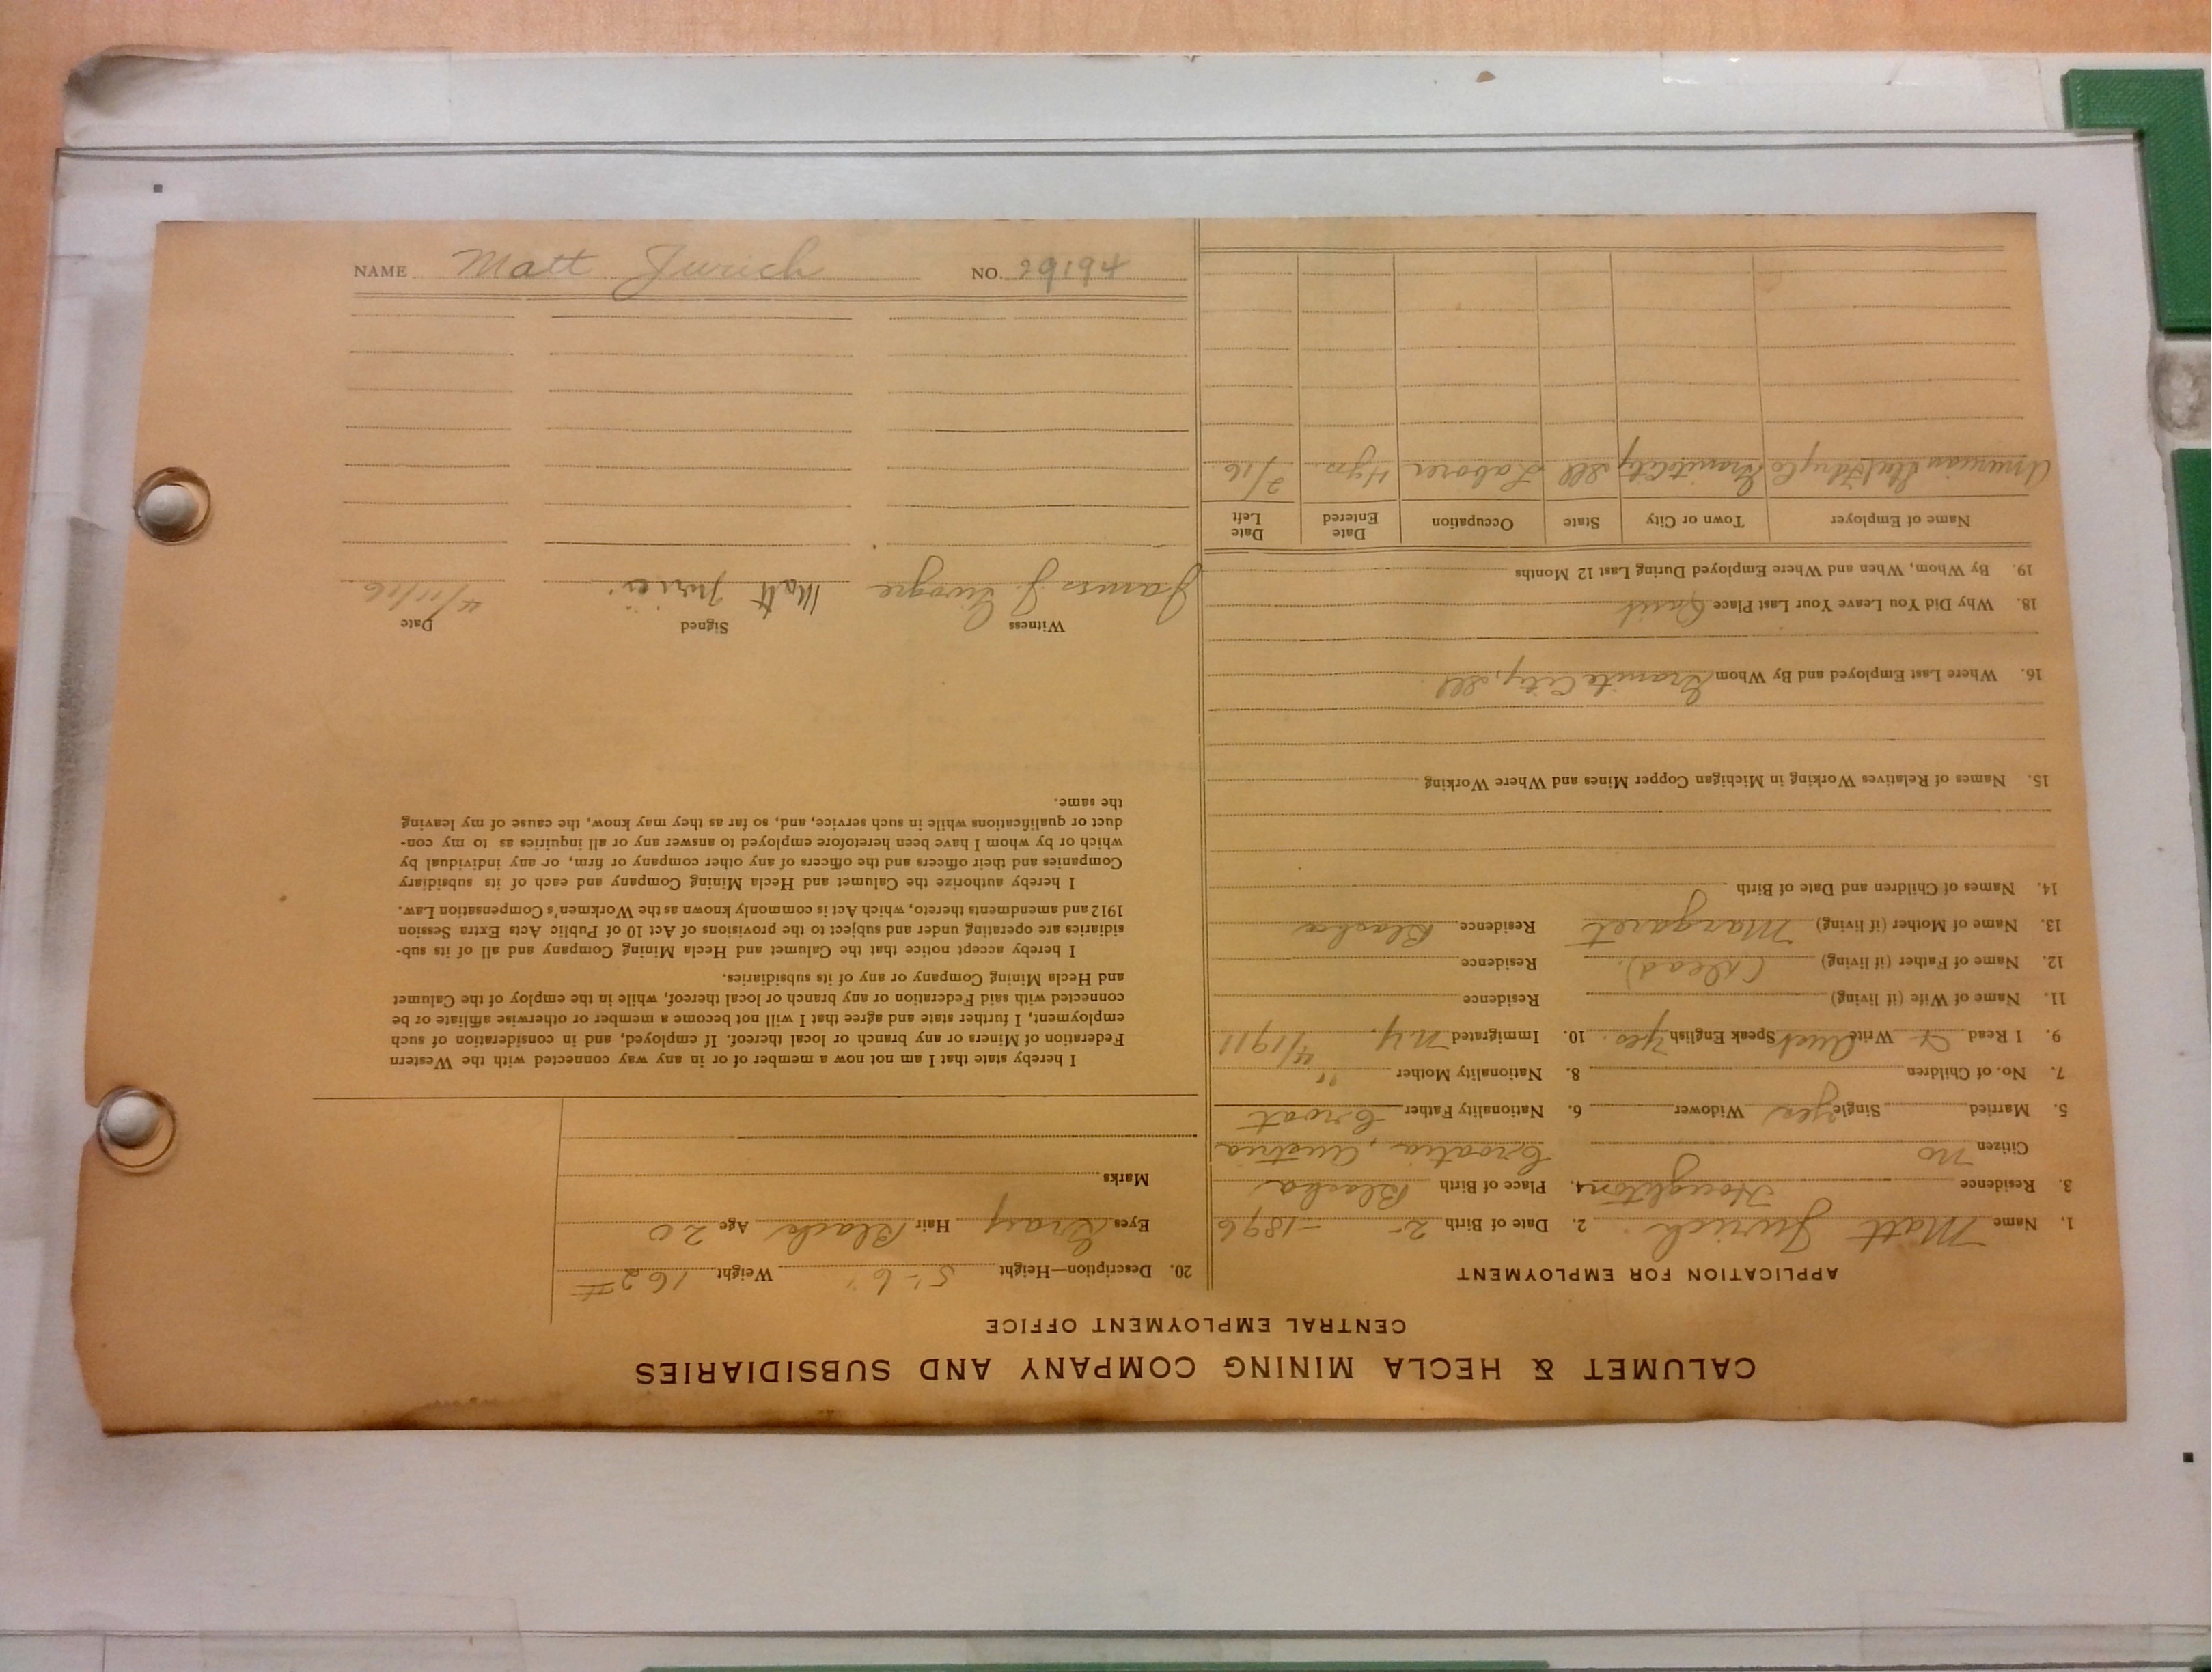 CALUMET & HECLA MINING COMPANY AND SUBSIDIARIES
CENTRAL EMPLOYMENT OFFICE
APPLICATION FOR EMPLOYMENT
1. Name Matt Jurich 2. Date of Birth 2 - 1896
3. Residence Houghton 4. Place of Birth Blaska
Citizen no Croatia, Austria
5. Married Single yes Widower 6. Nationality Father Croat
7. No. of Children 8. Nationality Mother "
9. I Read & Write Aust Speak English Yes. 10. Immigrated N.Y. 4/1911
11. Name of Wife (if living) Residence
12. Name of Father (if living) (Dead). Residence
13. Name of Mother (if living) Margaret Residence Blaska
14. Names of Children and Date of Birth
15. Names of Relatives Working in Michigan Copper Mines and Where Working
16. Where Last Employed and By Whom Granite City, Ill.
18. Why Did You Leave Your Last Place Quit
19. By Whom, When and Where Employed During Last 12 Months
Name of Employer Town or City State Occupation Date Entered Date Left
American Steel Fdry Co Granite City Ill Laborer 4 yrs. 2/16.
20. Description—Height 5'-6" Weight 162 #
Eyes Gray Hair Black Age 20
Marks
I hereby state that I am not now a member of or in any way connected with the Western
Federation of Miners or any branch or local thereof. If employed, and in consideration of such
employment, I further state and agree that I will not become a member or otherwise affiliate or be
connected with said Federation or any branch or local thereof, while in the employ of the Calumet
and Hecla Mining Company or any of its subsidiaries.
I hereby accept notice that the Calumet and Hecla Mining Company and all of its sub-
sidiaries are operating under and subject to the provisions of Act 10 of Public Acts Extra Session
1912 and amendments thereto, which Act is commonly known as the Workmen's Compensation Law.
I hereby authorize the Calumet and Hecla Mining Company and each of its subsidiary
Companies and their officers and the officers of any other company or firm, or any individual by
which or by whom I have been heretofore employed to answer any or all inquiries as to my con-
duct or qualifications while in such service, and, so far as they may know, the cause of my leaving
the same.
Witness Signed Date
James J. Matt Juric 4/11/16
NAME Matt Jurich NO. 29194